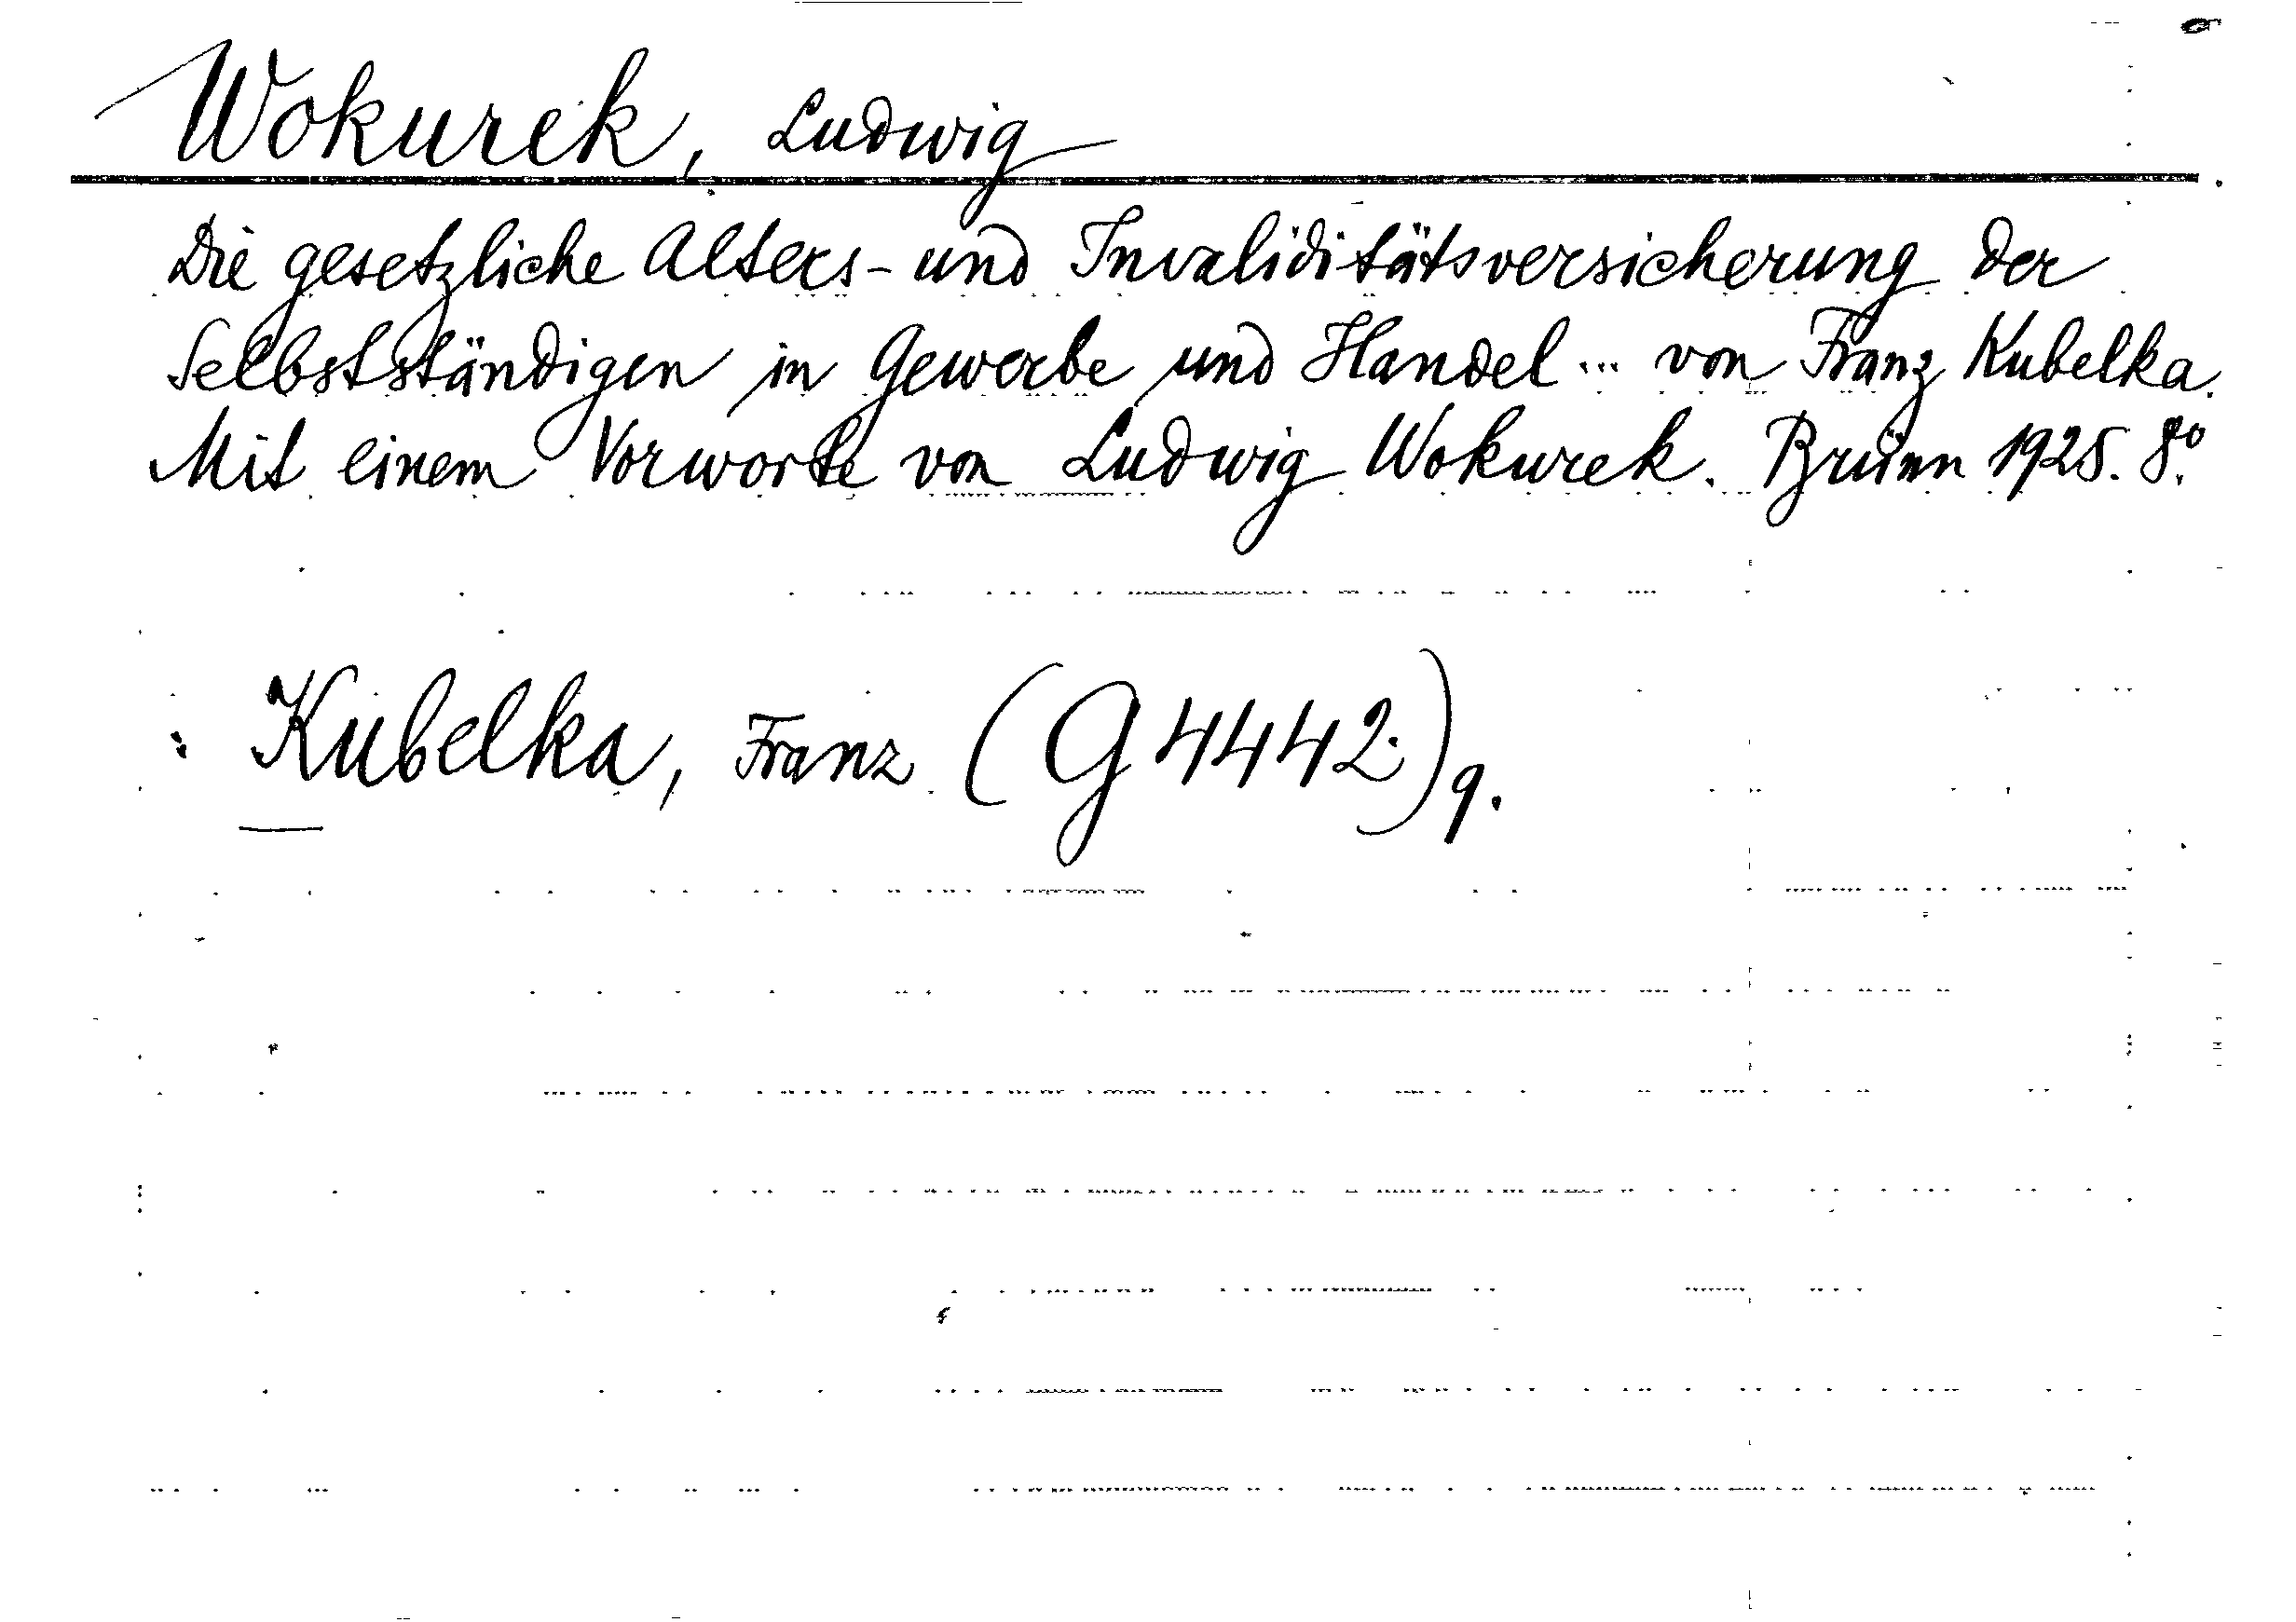 Wokurek, Ludwig
Die gesetzliche Alters- und Invaliditätsversicherung der
Selbstständigen in Gewerbe und Handel ... von Franz Kubelka.
Mit einem Vorworte von Ludwig Wokurek. Brünn 1925. 8º.
: Kubelka, Franz (G 4442.) q.